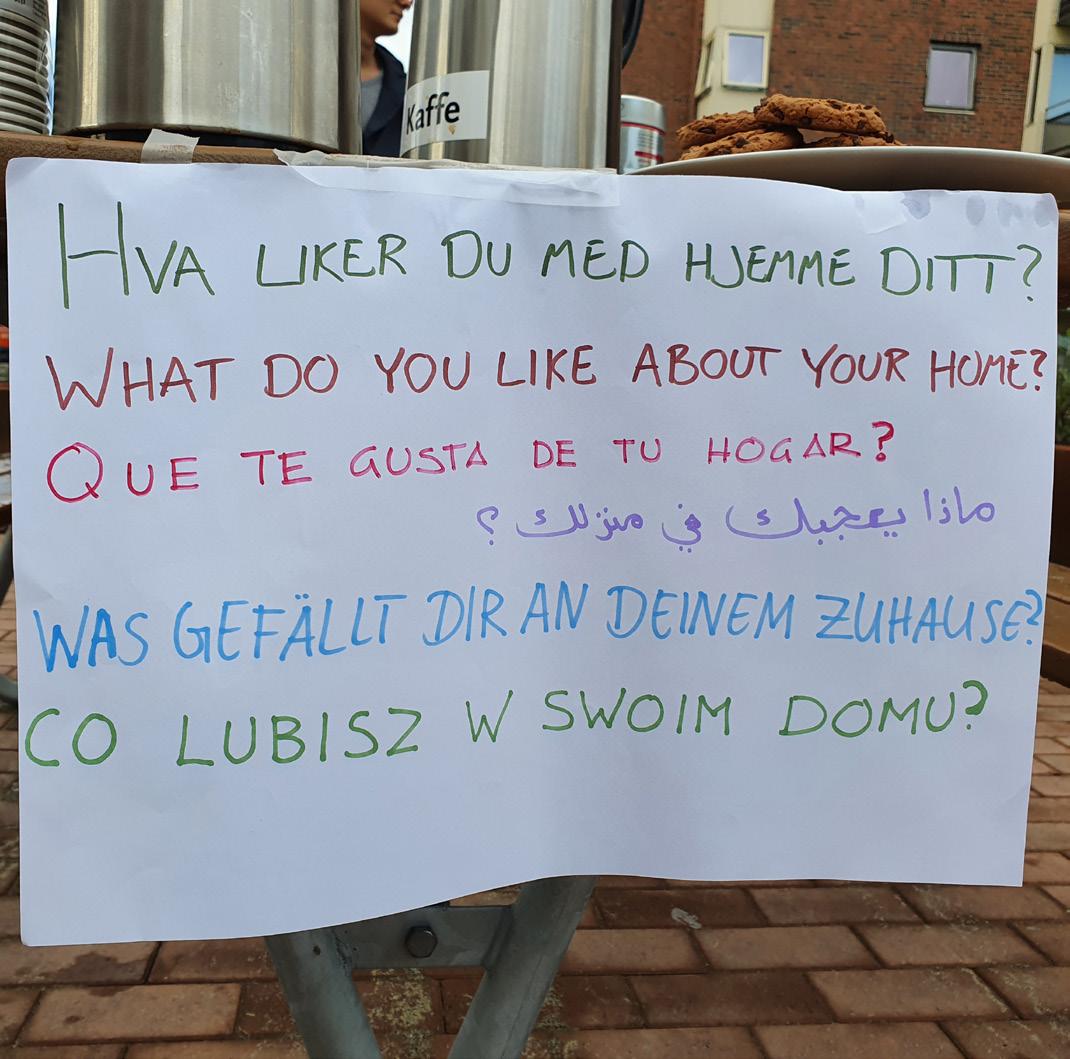 Kaffe
HVA LIKER DU MED HJEMME DITT?
WHAT DO YOU LIKE ABOUT YOUR HOME?
QUE TE GUSTA DE TU HOGAR?
ماذا يعجبك في منزلك ؟
WAS GEFÄLLT DIR AN DEINEM ZUHAUSE?
CO LUBISZ W SWOIM DOMU?